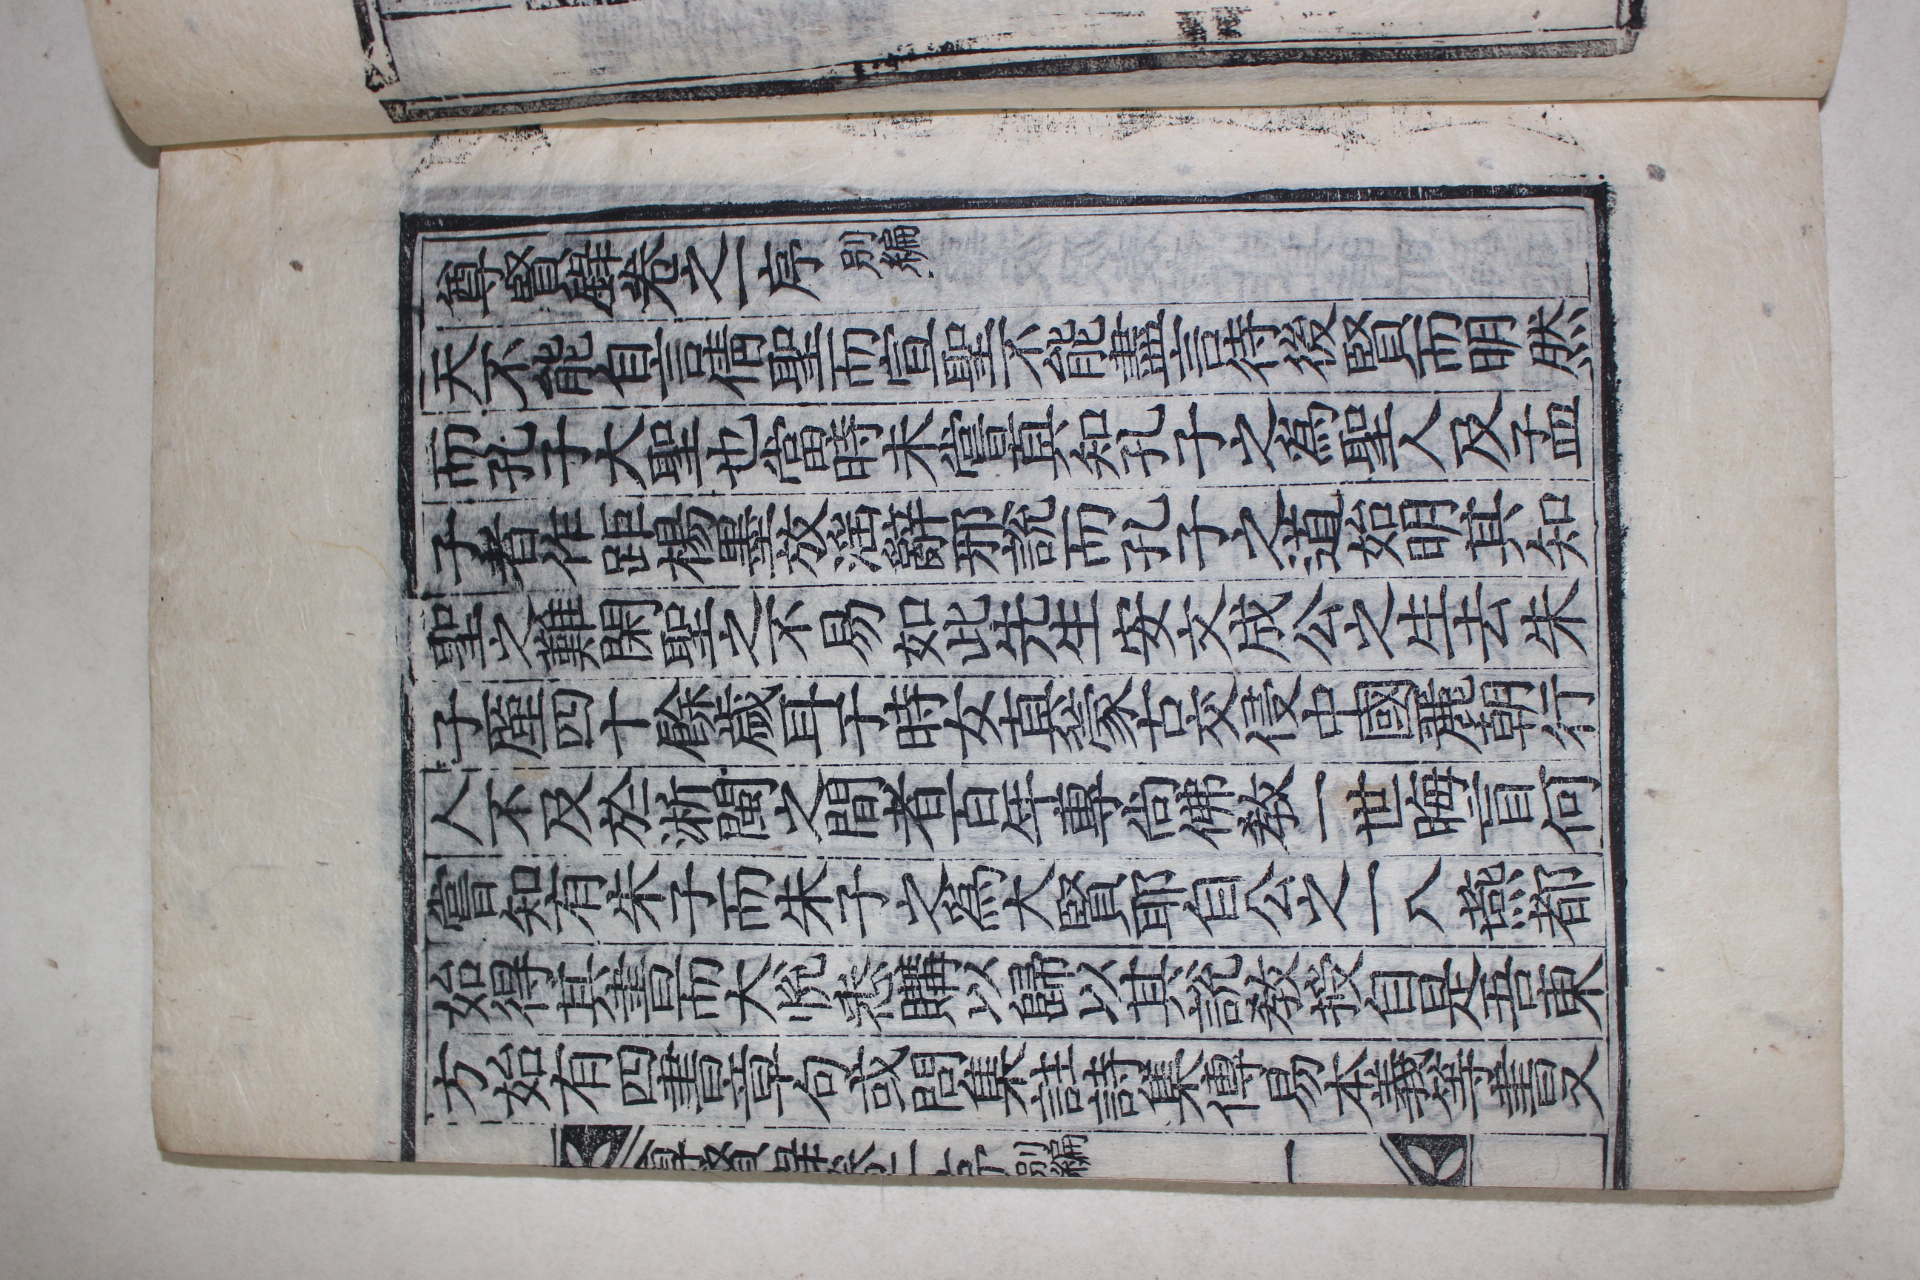 尊賢錄卷之一序 別編
天不能自言倩聖而宣聖不能盡言待後賢而明然
而孔子大聖也當時未嘗眞知孔子之爲聖人及孟
子者作距楊墨放淫辭邪說而孔子之道始明其知
聖之難閑聖之不易如此先生安文成公之生去朱
子廑四十餘歲耳于時女眞蒙古交侵中國麗朝行
人不及於淅閩之間者百年專尙佛敎一世晦盲何
嘗知有朱子而朱子之爲大賢耶自公之一入燕都
始得其書而大悅悉購以歸以其說敎授自是吾東
方始有四書章句或問集註詩集傳易本義等書又
尊賢錄卷之一序 別編 一